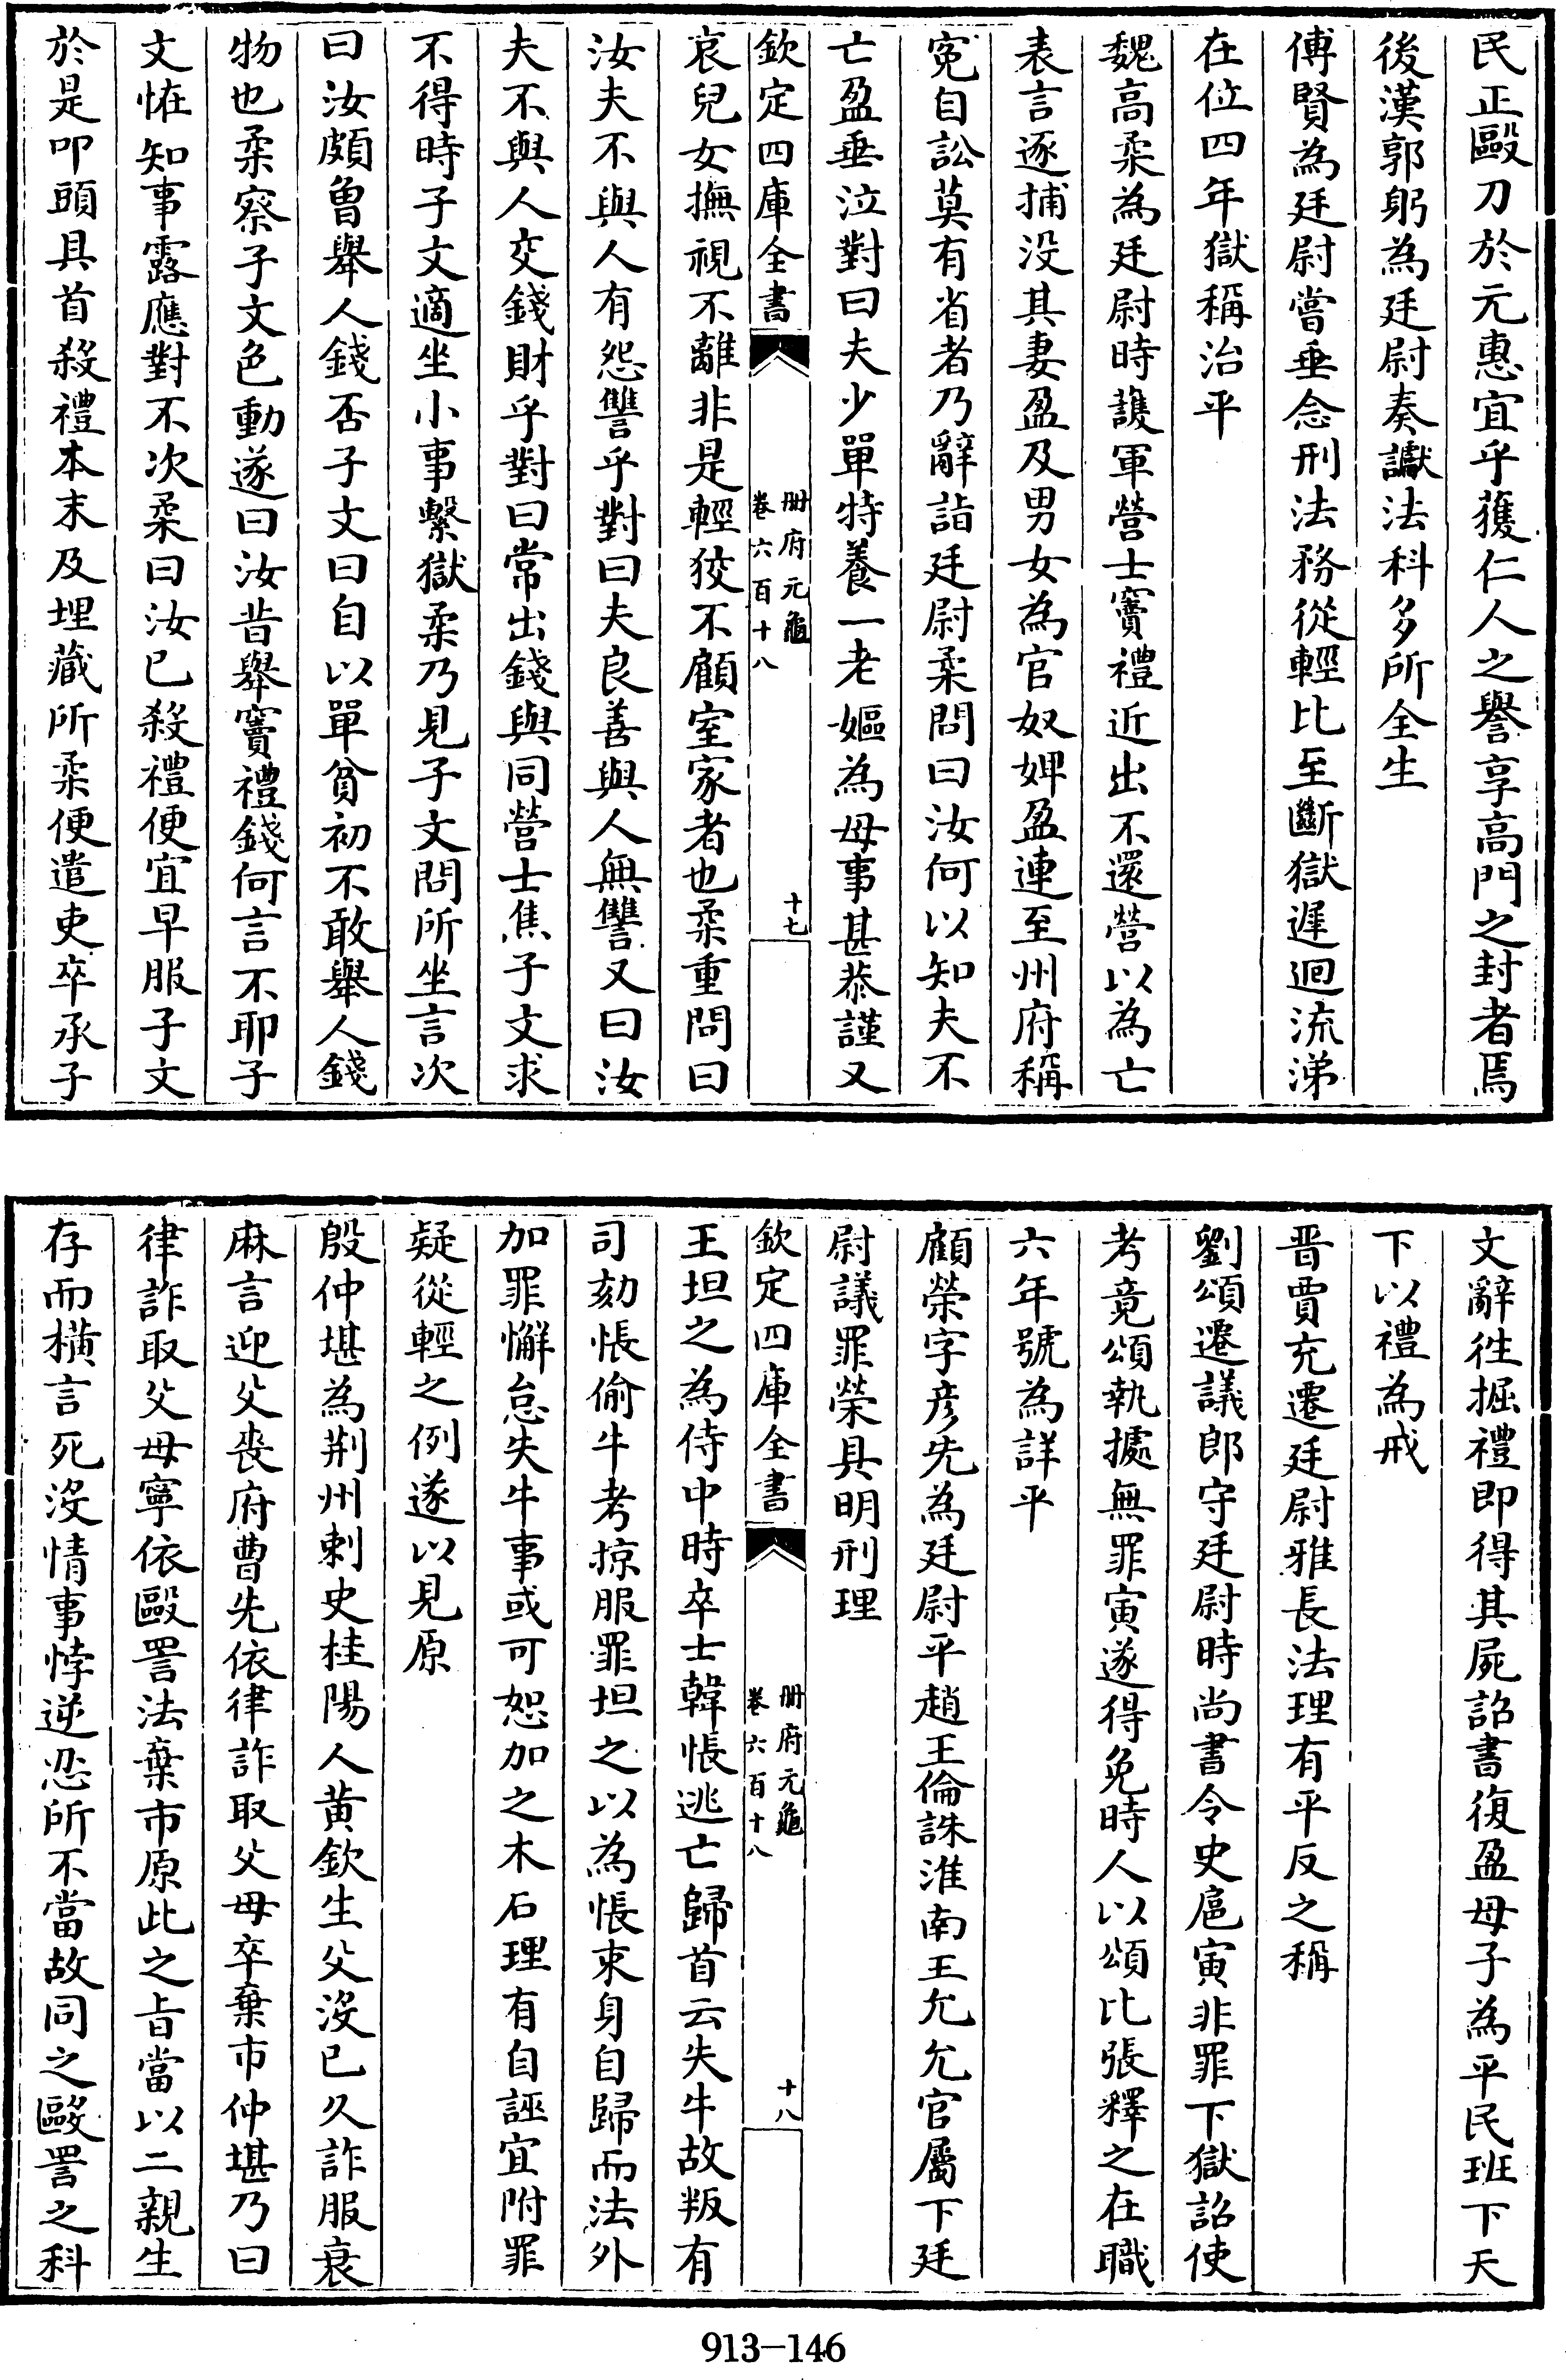 民正毆刀於元惠宜乎獲仁人之譽享高門之封者焉
後漢郭躬為廷尉奏讞法科多所全生
傅賢為廷尉嘗垂念刑法務從輕比至斷獄遲迴流涕
在位四年獄稱治平
魏高柔為廷尉時護軍營士竇禮近出不還營以為亡
表言逐捕没其妻盈及男女為官奴婢盈連至州府稱
寃自訟莫有省者乃辭詣廷尉柔問曰汝何以知夫不
亡盈垂泣對曰夫少單特養一老嫗為母事甚恭謹又
欽定四庫全書
冊府元龜
卷六百十八
十七
哀兒女撫視不離非是輕狡不顧室家者也柔重問曰
汝夫不與人有怨讐乎對曰夫良善與人無讐又曰汝
夫不與人交錢財乎對曰常出錢與同營士焦子文求
不得時子文適坐小事繫獄柔乃見子文問所坐言次
曰汝頗曾舉人錢否子文曰自以單貧初不敢舉人錢
物也柔察子文色動遂曰汝昔舉竇禮錢何言不耶子
文恠知事露應對不次柔曰汝已殺禮便宜早服子文
於是叩頭具首殺禮本末及埋藏所柔便遣吏卒承子
文辭徃掘禮即得其屍詔書復盈母子為平民班下天
下以禮為戒
晉賈充遷廷尉雅長法理有平反之稱
劉頌遷議郎守廷尉時尚書令史扈寅非罪下獄詔使
考竟頌執據無罪寅遂得免時人以頌比張釋之在職
六年號為詳平
顧榮字彦先為廷尉平趙王倫誅淮南王允允官屬下廷
尉議罪榮具明刑理
欽定四庫全書
冊府元龜
卷六百十八
十八
王坦之為侍中時卒士韓悵逃亡歸首云失牛故叛有
司劾悵偷牛考掠服罪坦之以為悵束身自歸而法外
加罪懈怠失牛事或可恕加之木石理有自誣宜附罪
疑從輕之例遂以見原
殷仲堪為荆州刺史桂陽人黄欽生父没已久詐服衰
麻言迎父喪府曹先依律詐取父母卒棄市仲堪乃曰
律詐取父母寧依毆詈法棄市原此之旨當以二親生
存而横言死没情事悖逆忍所不當故同之毆詈之科
913-146